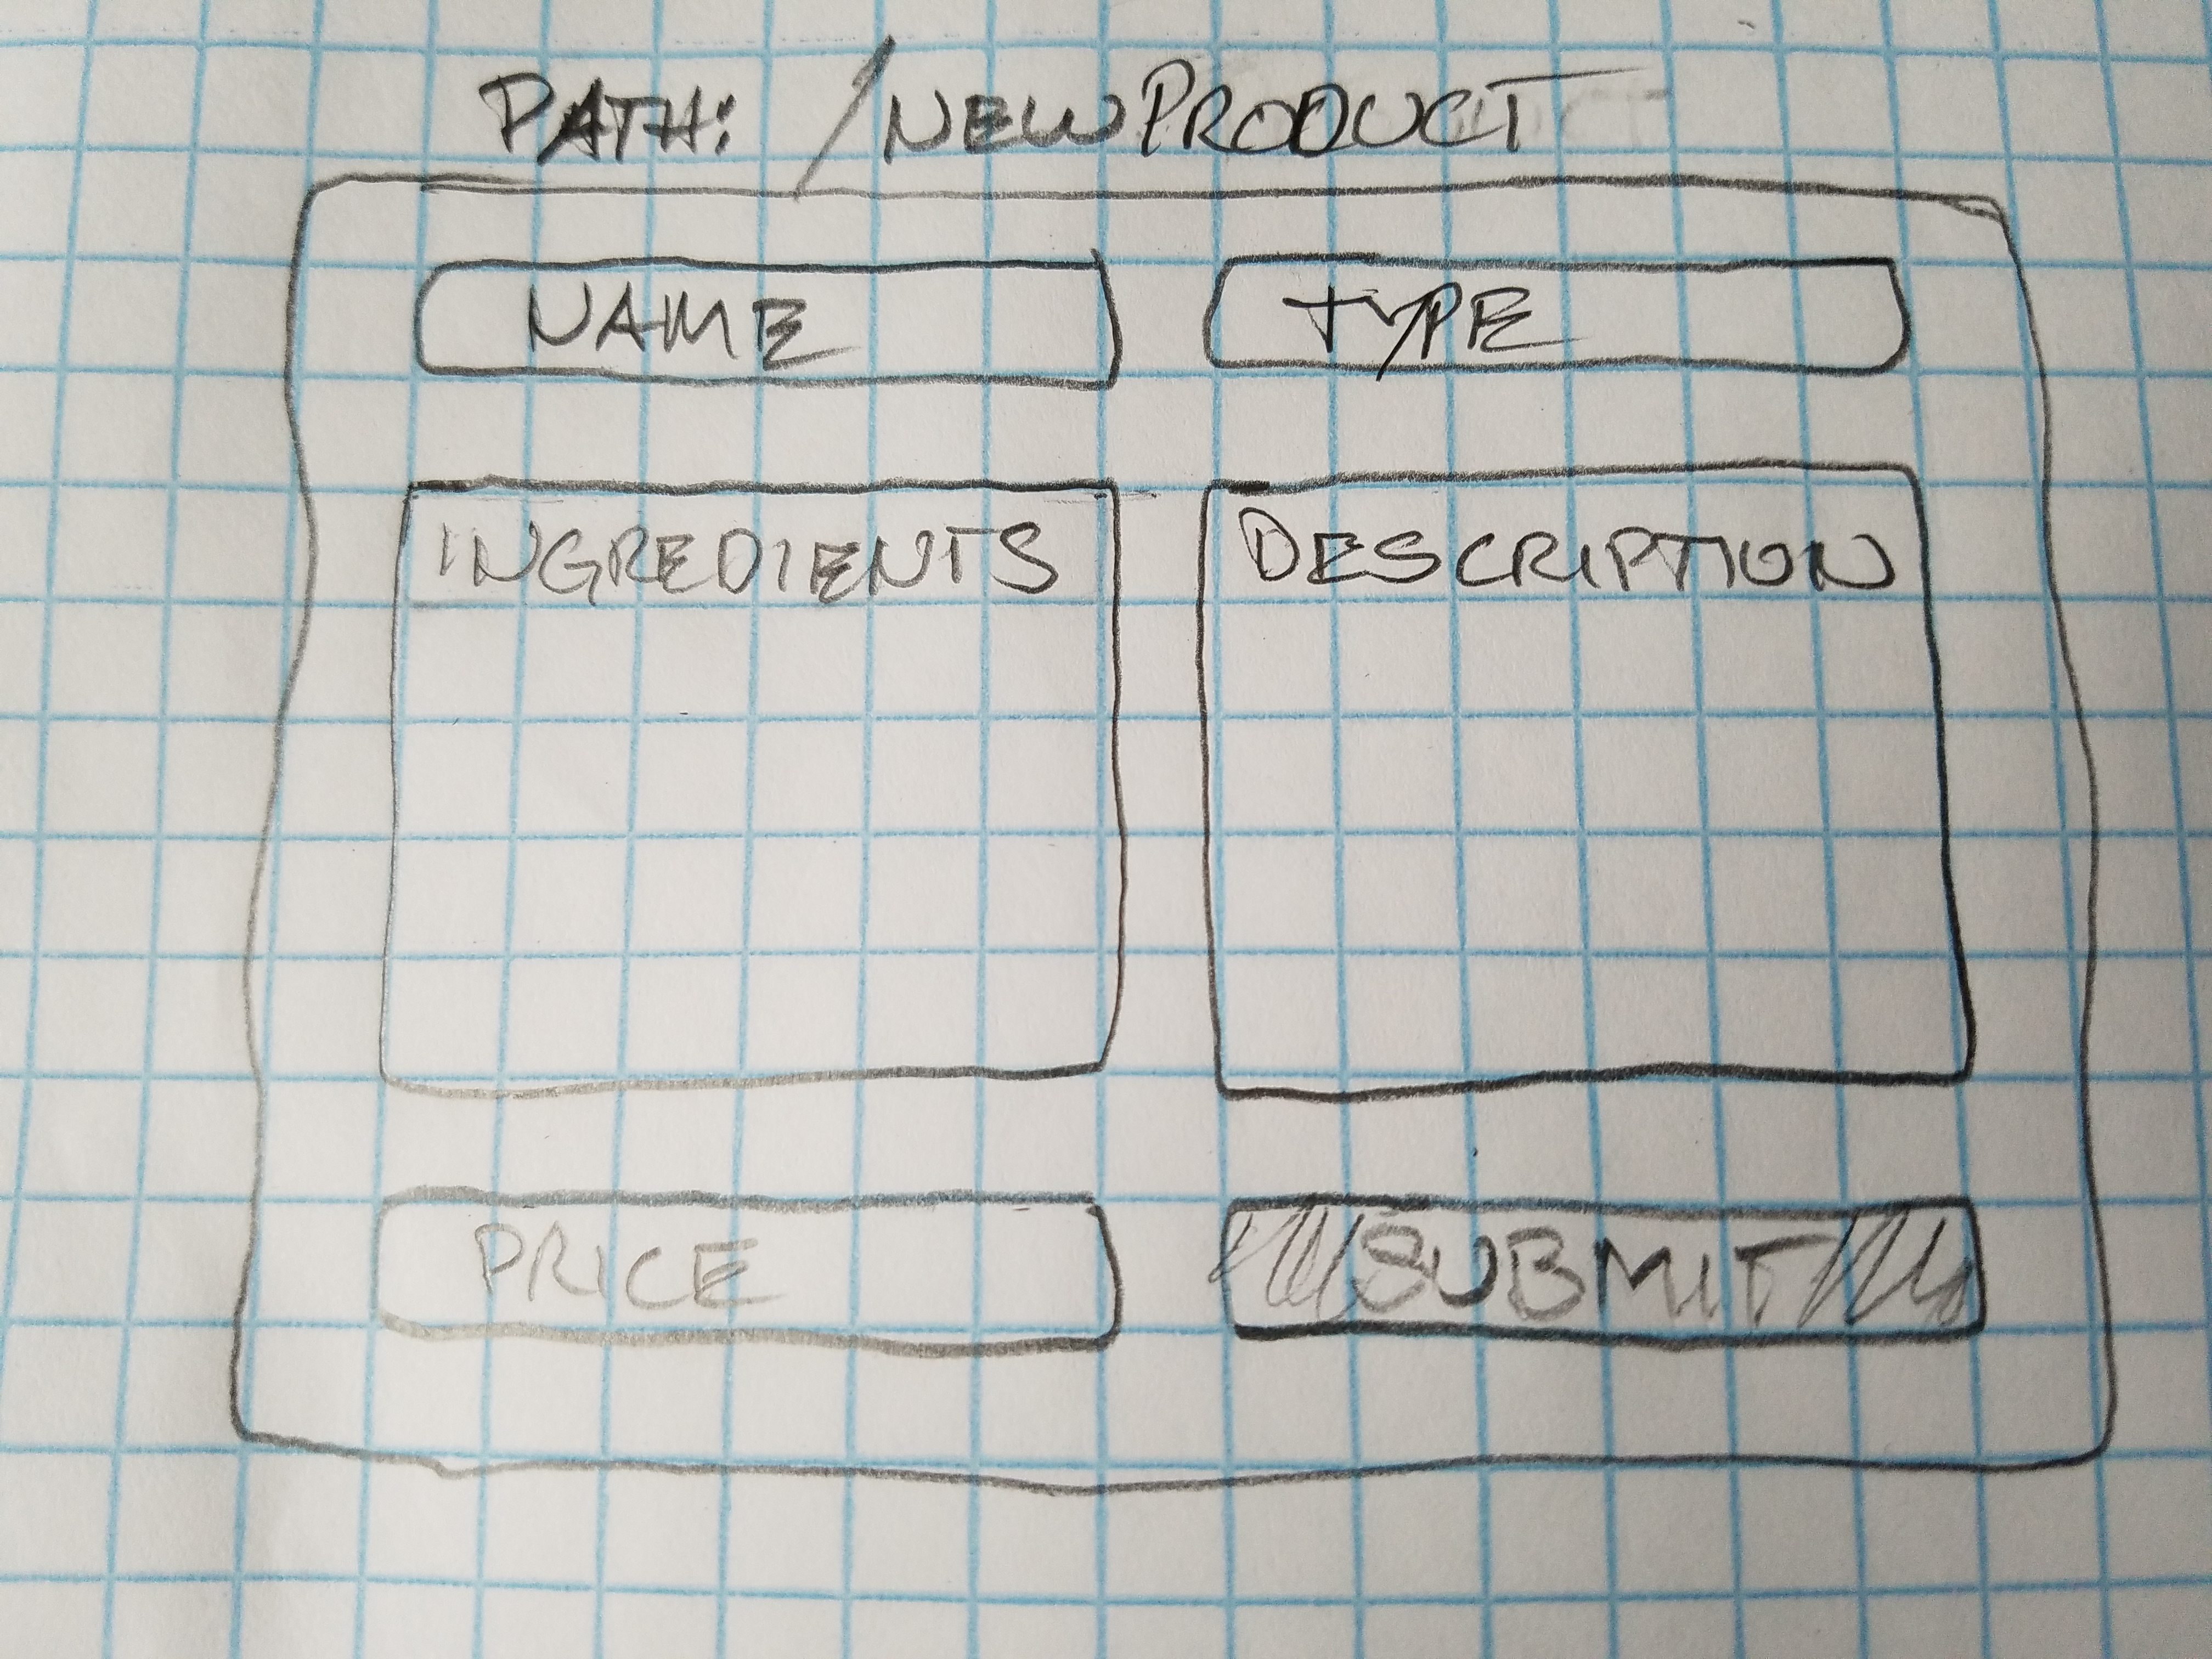 PATH: /NEWPRODUCT
NAME
TYPE
INGREDIENTS
DESCRIPTION
PRICE
SUBMIT